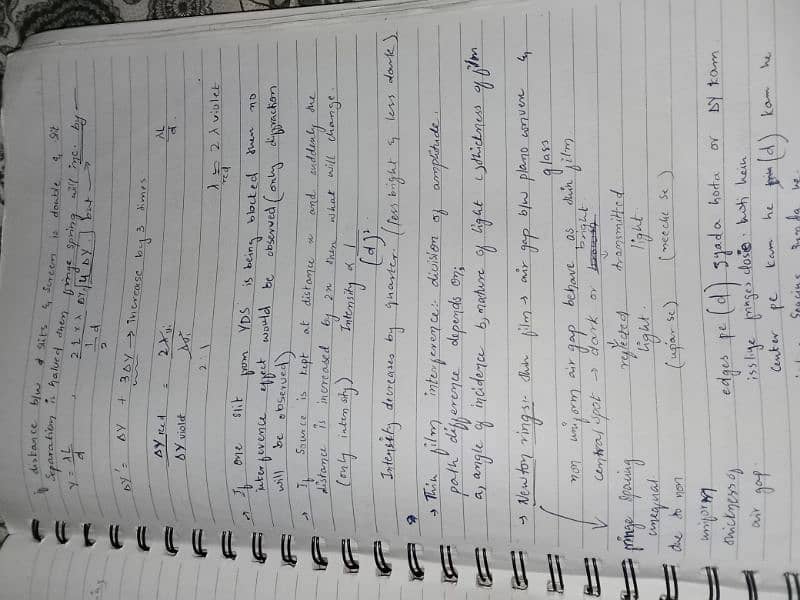 if distance b/w slits & screen is double & slit
separation is halved then fringe spacing will inc. by —
y = λL/d , 2L x λ / (1/2 d) ΔY, 4 ΔY. } but →
ΔY' = ΔY + 3ΔY → increase by 3 times
ΔY red / ΔY violet = 2λvi / λvi λL/d
2:1 λ red = 2 λ violet
→ If one slit from YDS is being blocked then no
interference effect would be observed (only diffraction
will be observed)
→ If Source is kept at distance n and suddenly the
distance is increased by 2n then what will change.
(only intensity) Intensity α 1/(d)²
Intensity decreases by quarter. (less bright & less dark).
→ Thin film interference: division of amplitude.
path difference depends on;
a, angle of incidence b, nature of light c, thickness of film
→ Newton rings:- thin film → air gap b/w plano convex &
glass
non uniform air gap behave as thin film
central spot → dark or bright
fringe spacing reflected transmitted
unequal light. light.
due to non (upar se) (neeche se)
uniform edges pe (d) zyada hota or ΔY kam
thickness of issliye fringes close hoti hein
air gap center pe kam he (d) kam he